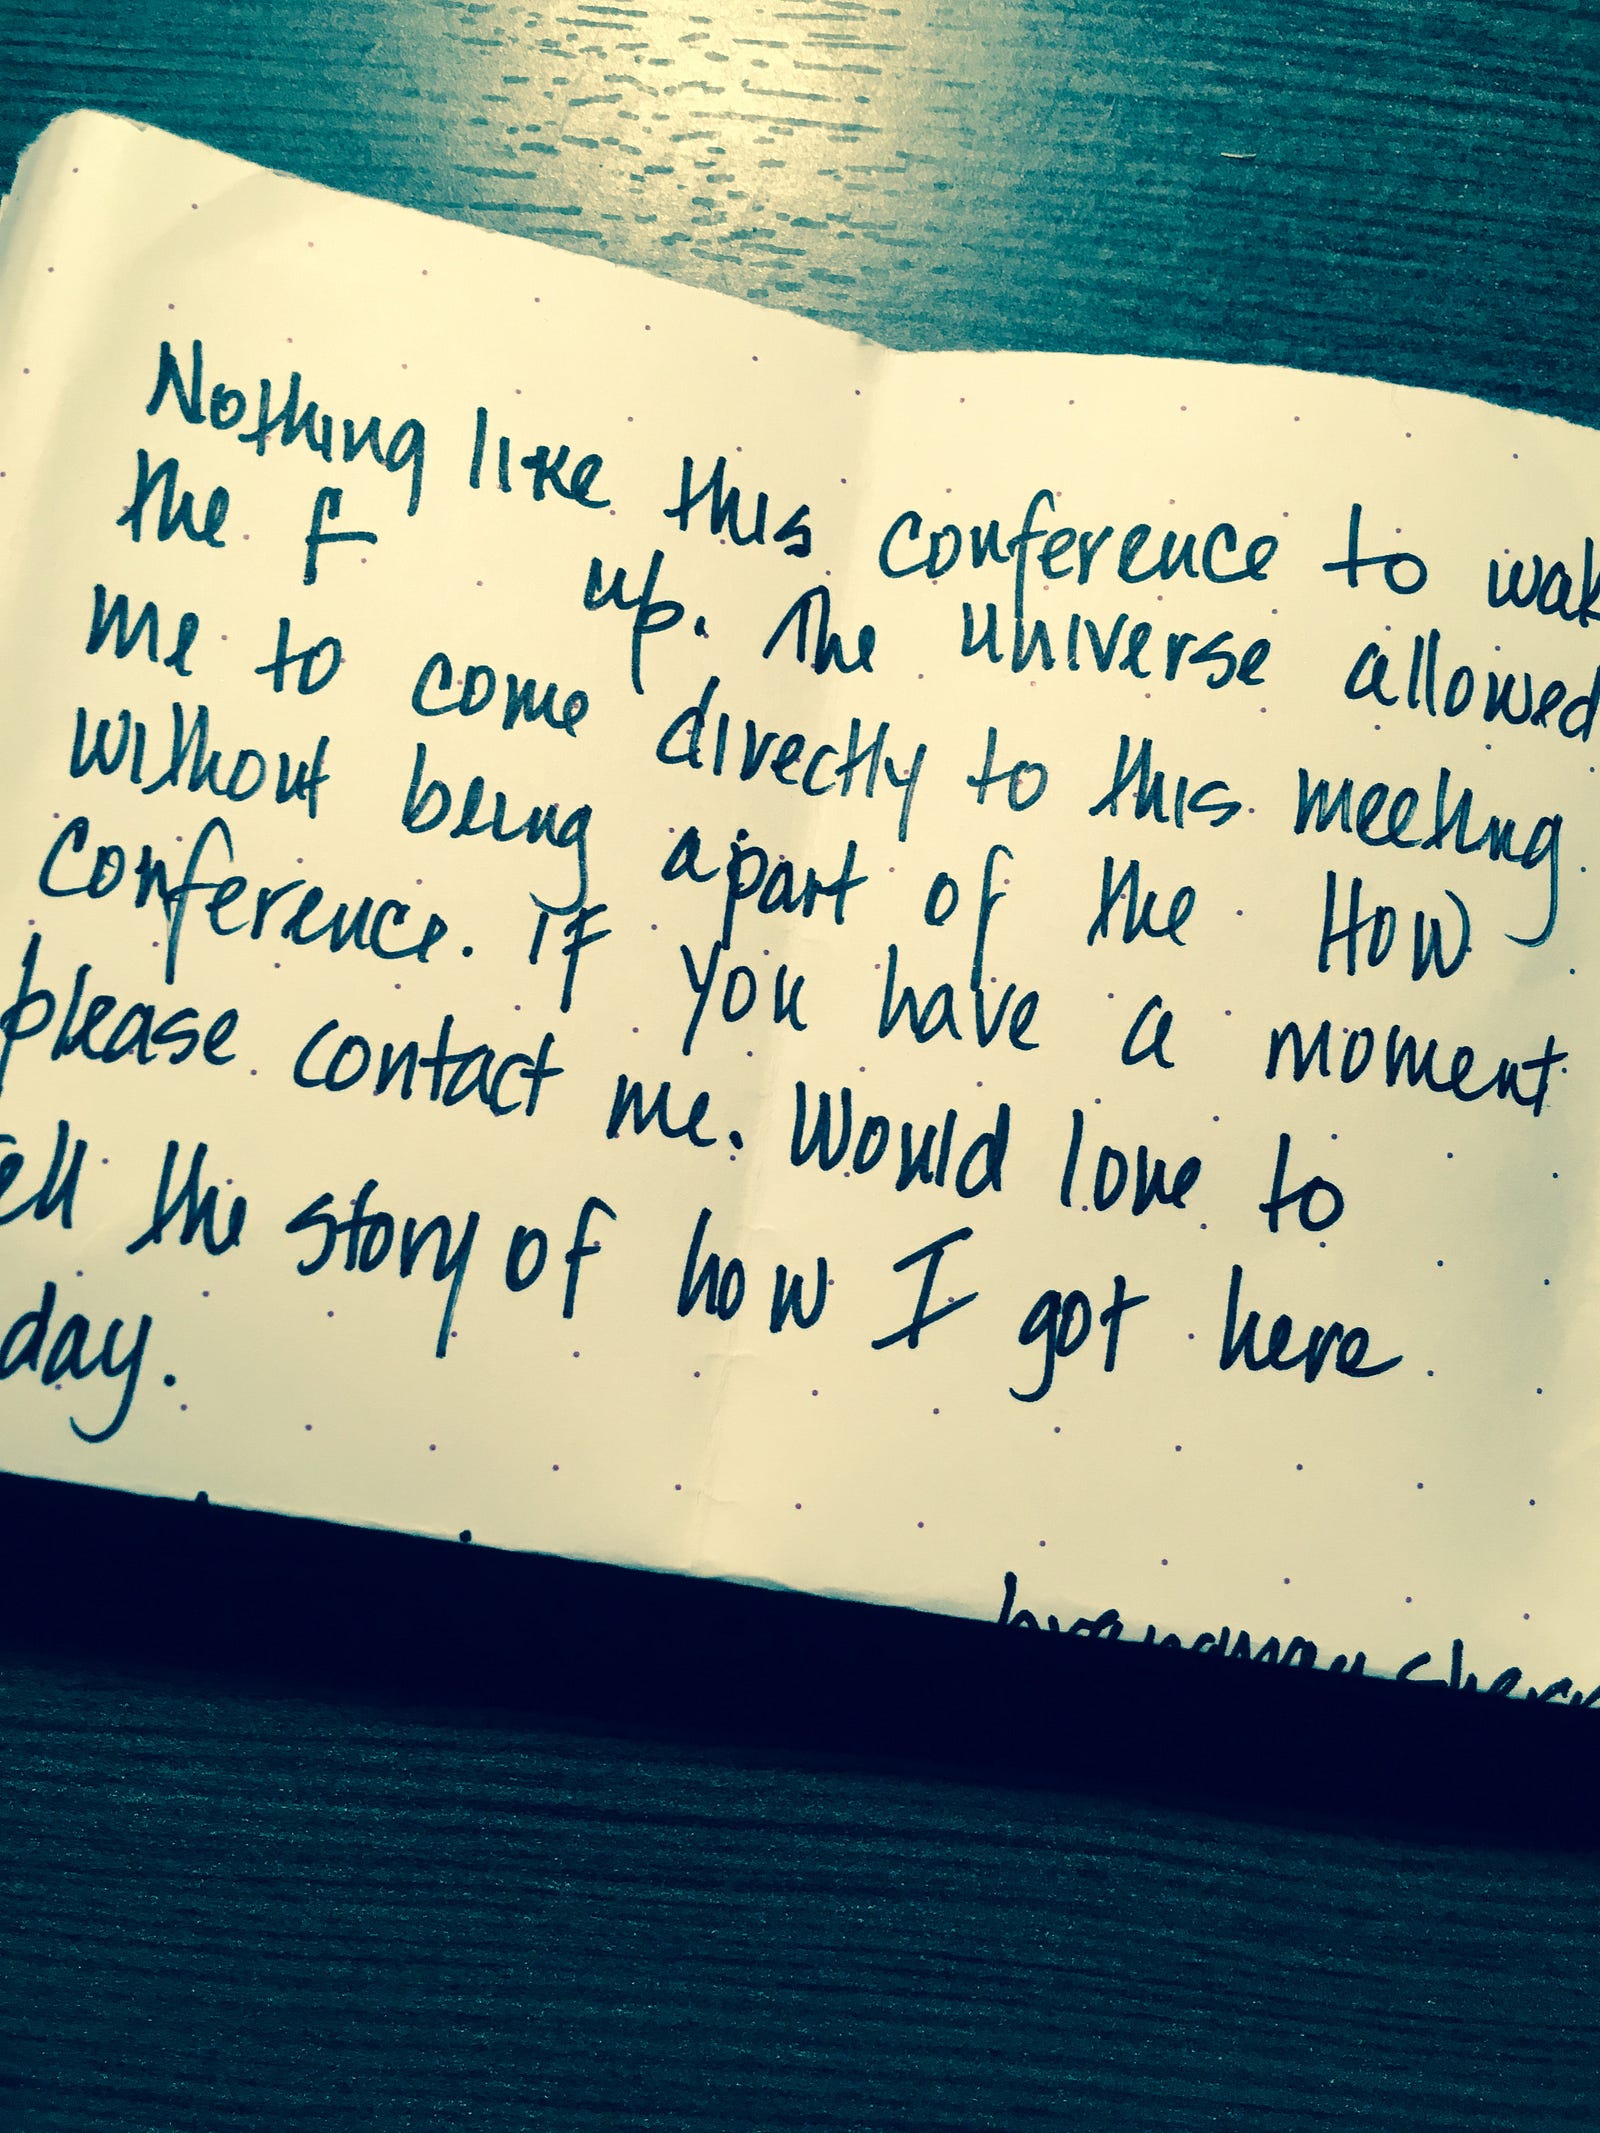 Nothing like this conference to wak
the f up. The universe allowed
me to come directly to this meeting
without being apart of the How
conference. if you have a moment
please contact me. Would love to
ell the story of how I got here
day.